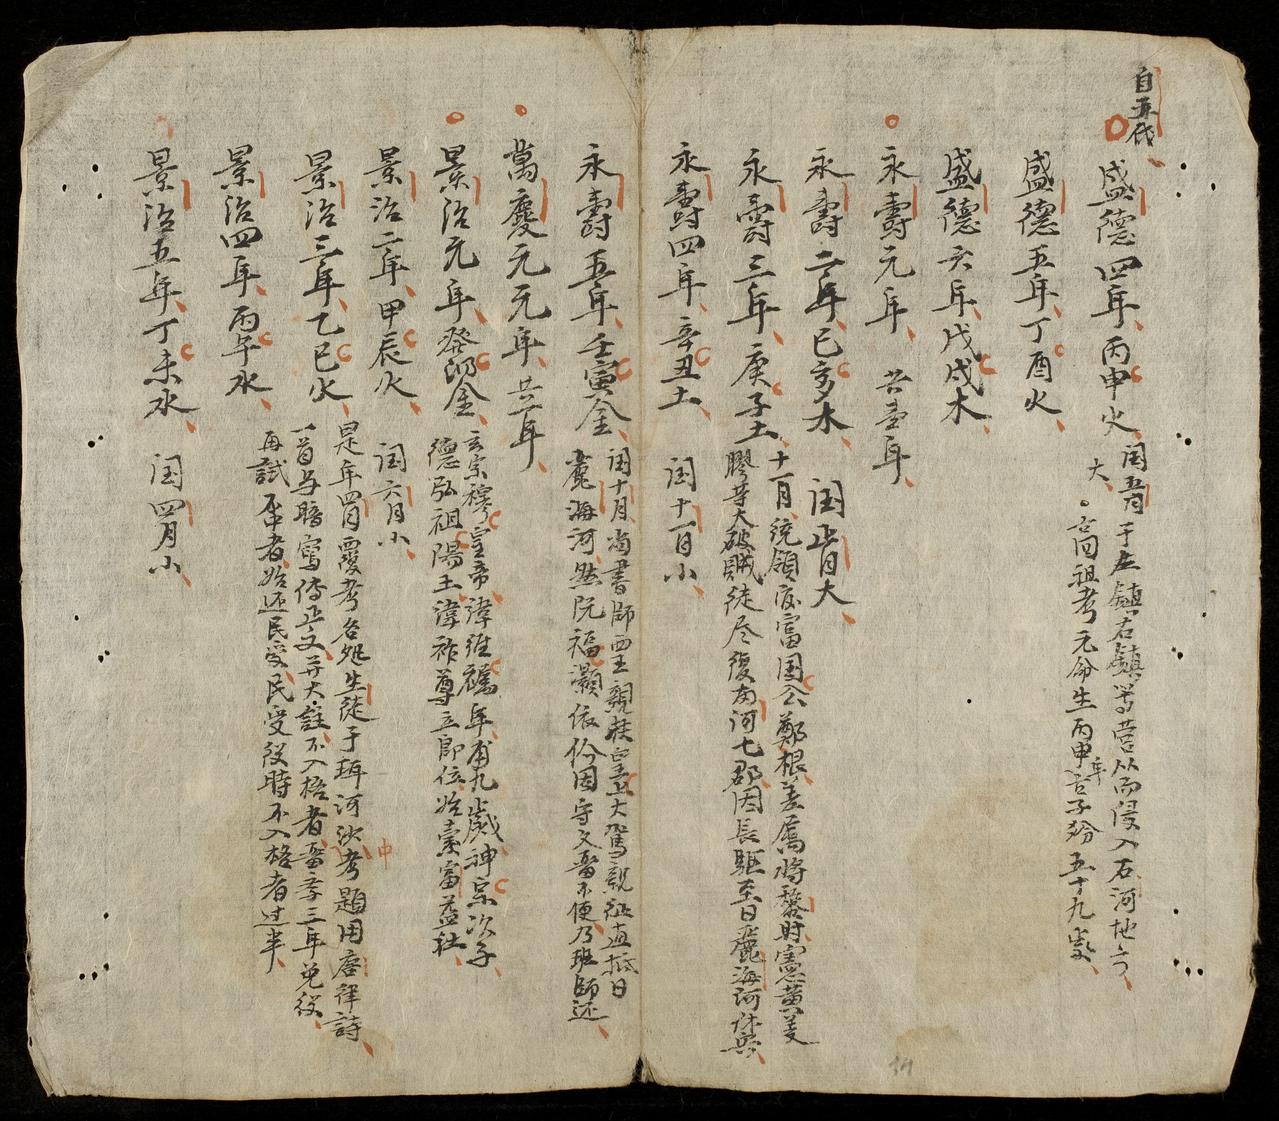 自五代
盛德四年丙申火 閏五月大 于左鎮右鎮等營从而侵入石河地方
高祖考元命生丙申年言子孫五十九歲
盛德五年丁酉火
盛德六年戊戌木
永壽元年 廿壹年
永壽二年己亥木 閏正月大
永壽三年庚子土 十一月統領度富国公鄭根差属將黎時憲黄
膠等大破賊徒尽復南河七郡因長驅至日麗海河休兵
永壽四年辛丑土 閏十一月小
永壽五年壬寅金 閏十月尚書師西王親扶皇上大駕親征直抵日
麗海河然阮福瀕依俆因守文
不便乃班師还
萬慶元元年 廿二年
景治元年癸卯金 玄宗穆皇帝諱維䄎年甫九歲神宗次子
德弘祖陽王諱祚尊立即位始
富益社
景治二年甲辰火 閏六月小
景治三年乙巳火 是年四月覆考各処生徒于珥河沙考題用唐律詩
一首与暗寫傳正文并大註不入格者
三年免役
再試不中者始还民受民受役時不入格者过半
景治四年丙午水
景治五年丁未水 閏四月小
中